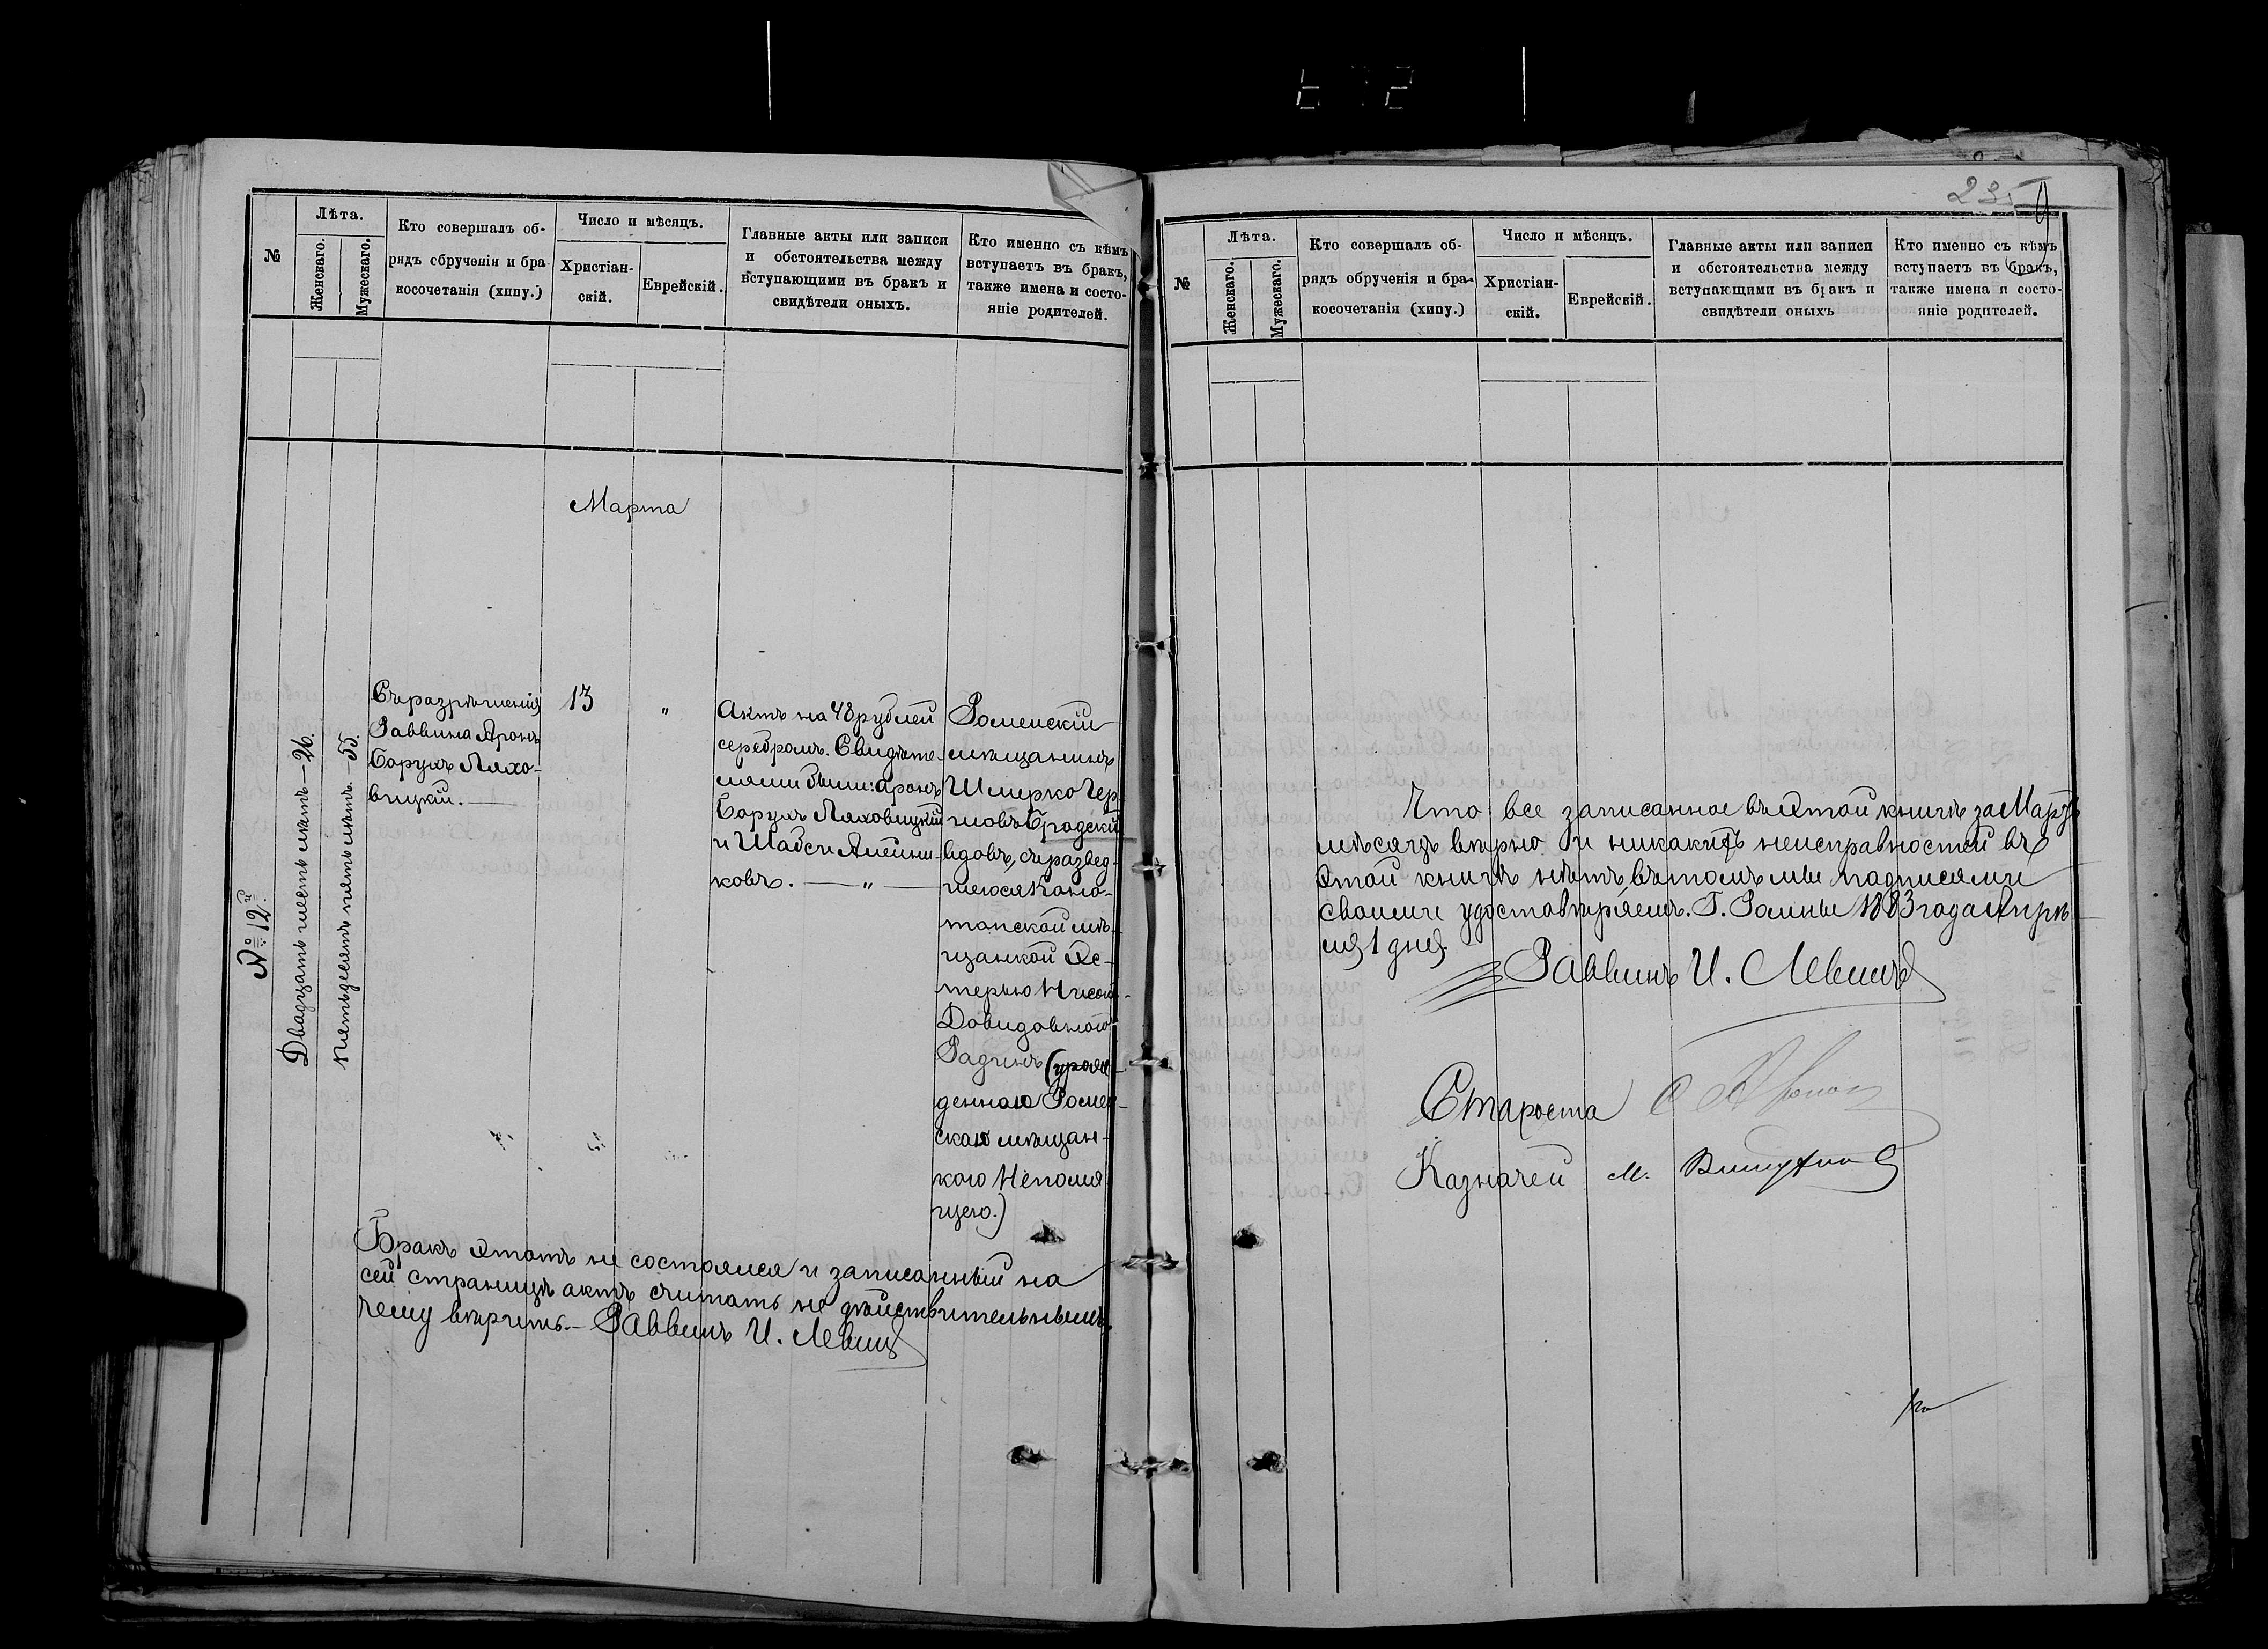 №
Лѣта.
Женскаго.
Мужескаго.
Кто совершалъ об-
рядъ обрученія и бра
косочетанія (хипу.)
Число и мѣсяцъ.
Христіан-
скій.
Еврейскій.
Главные акты или записи
и обстоятельства между
вступающими въ бракъ и
свидѣтели оныхъ.
Кто именно съ кѣмъ
вступаетъ въ бракъ,
также имена и состо-
яніе родителей.
Марта
№ 12й.
Двадцать шесть лѣтъ – 26.
Пятьдесятъ пять лѣтъ. – 55.
Съ разрѣшенія
Раввина Аронъ
Борухъ Ляхо-
вицкій.
13
"
Актъ на 48 рублей
серебромъ. Свидѣте-
лями были: Аронъ
Борухъ Ляховицкій
и Шабси Алейни-
ковъ. — " —
Роменскій
мѣщанинъ
Шмерко Гер
шовъ Бродскій
вдовъ, съ развед-
шеюся Коно-
топской мѣ-
щанкой Эс-
терью Нисой
Довидовною
Радинъ (урож-
денною Ромен-
скою мѣщан-
кою Непомя
щею.)
Бракъ этотъ не состоялся и записанный на
сей страницѣ актъ считать не дѣйствительнымъ,
чему вѣрить. – Раввинъ И. Левинъ
235
9
№
Лѣта.
Женскаго.
Мужескаго.
Кто совершалъ об-
рядъ обрученія и бра-
косочетанія (хипу.)
Число и мѣсяцъ.
Христіан-
скій.
Еврейскій.
Главные акты или записи
и обстоятельства между
вступающими въ бракъ и
свидѣтели оныхъ
Кто именно съ кѣмъ
вступаетъ въ бракъ,
также имена и состо-
яніе родителей.
Что все записанное въ этой книгѣ за Мартъ
мѣсяцъ вѣрно и никакихъ неисправностей въ
этой книгѣ нѣтъ въ томъ мы подписями
своими удостовѣряемъ. Г. Ромны 1883 года Апрѣ
ля 1 дня.
Раввинъ И. Левинъ
Староста
Казначей М.